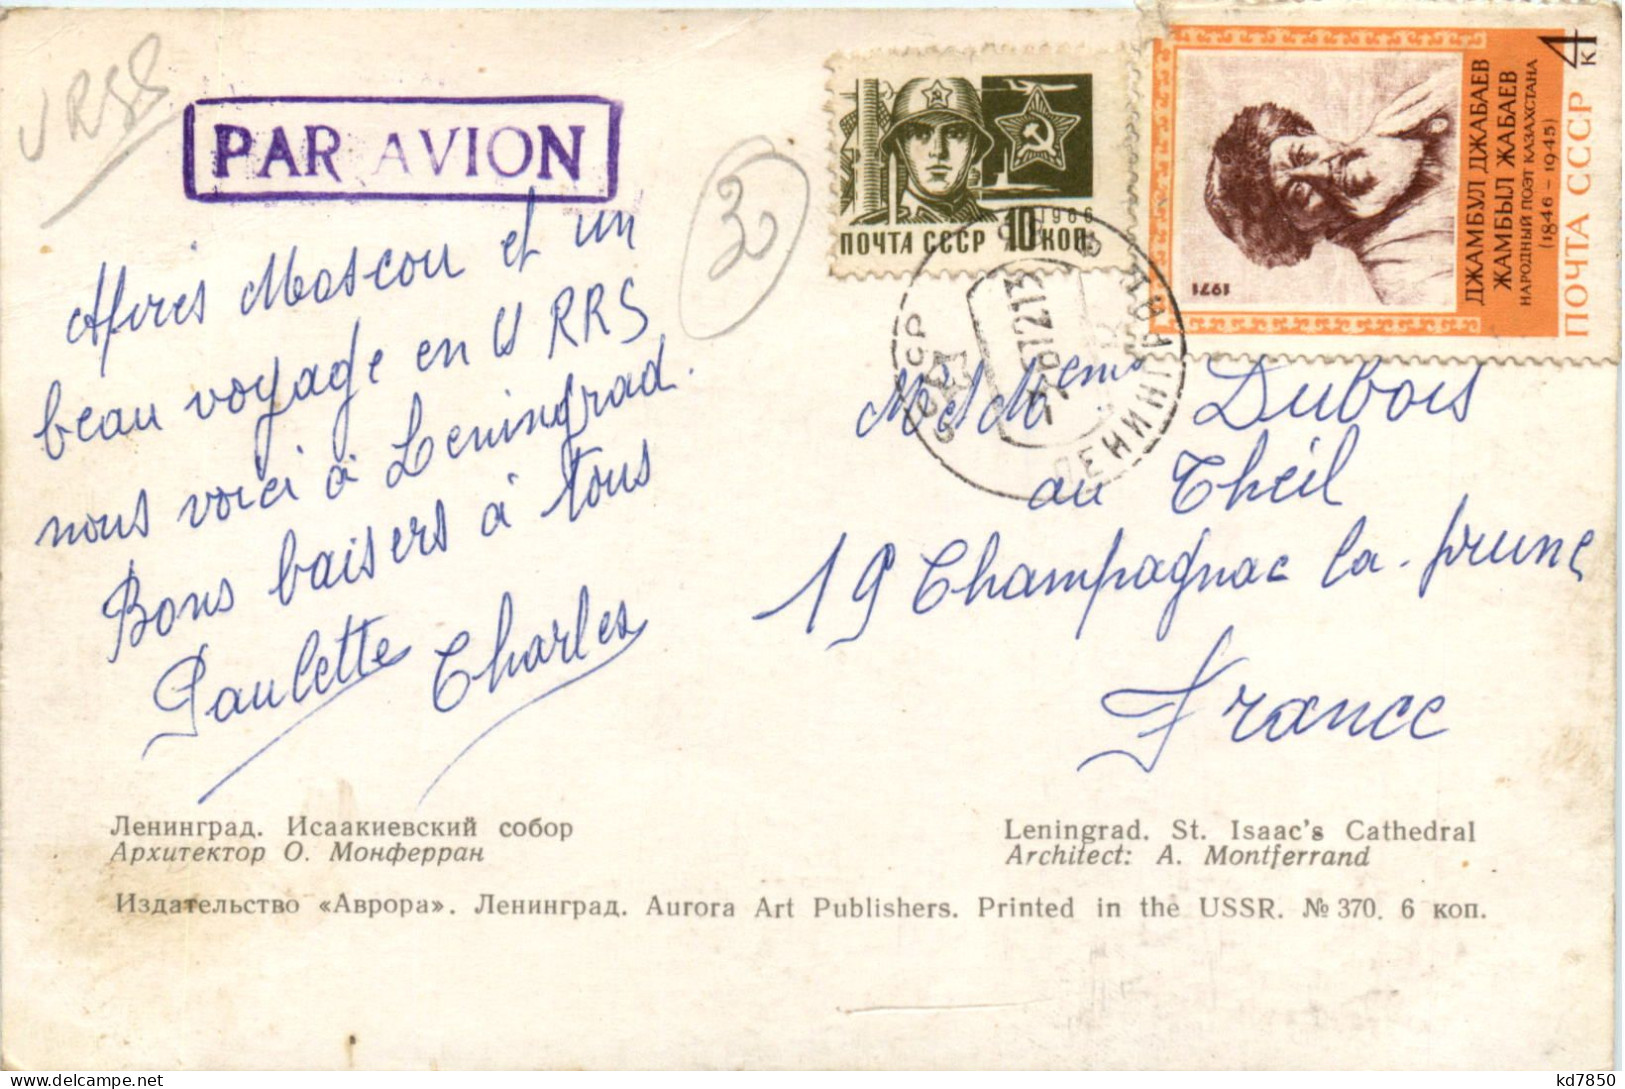 URSS
PAR AVION
30
Après Moscou et un
beau voyage en URRS
nous voici à Leningrad.
Bons baisers à tous
Paulette Charles
1966
ПОЧТА СССР 10 КОП.
4 к
ПОЧТА СССР
ДЖАМБУЛ ДЖАБАЕВ
ЖАМБЫЛ ЖАБАЕВ
НАРОДНЫЙ ПОЭТ КАЗАХСТАНА
(1846 – 1945)
1971
СССР
ЛЕНИНГРАД
M et Mme Dubois
au Theil
19 Champagnac la prune
France
Ленинград. Исаакиевский собор
Архитектор О. Монферран
Leningrad. St. Isaac's Cathedral
Architect: A. Montferrand
Издательство «Аврора». Ленинград. Aurora Art Publishers. Printed in the USSR. № 370. 6 коп.
kd7850